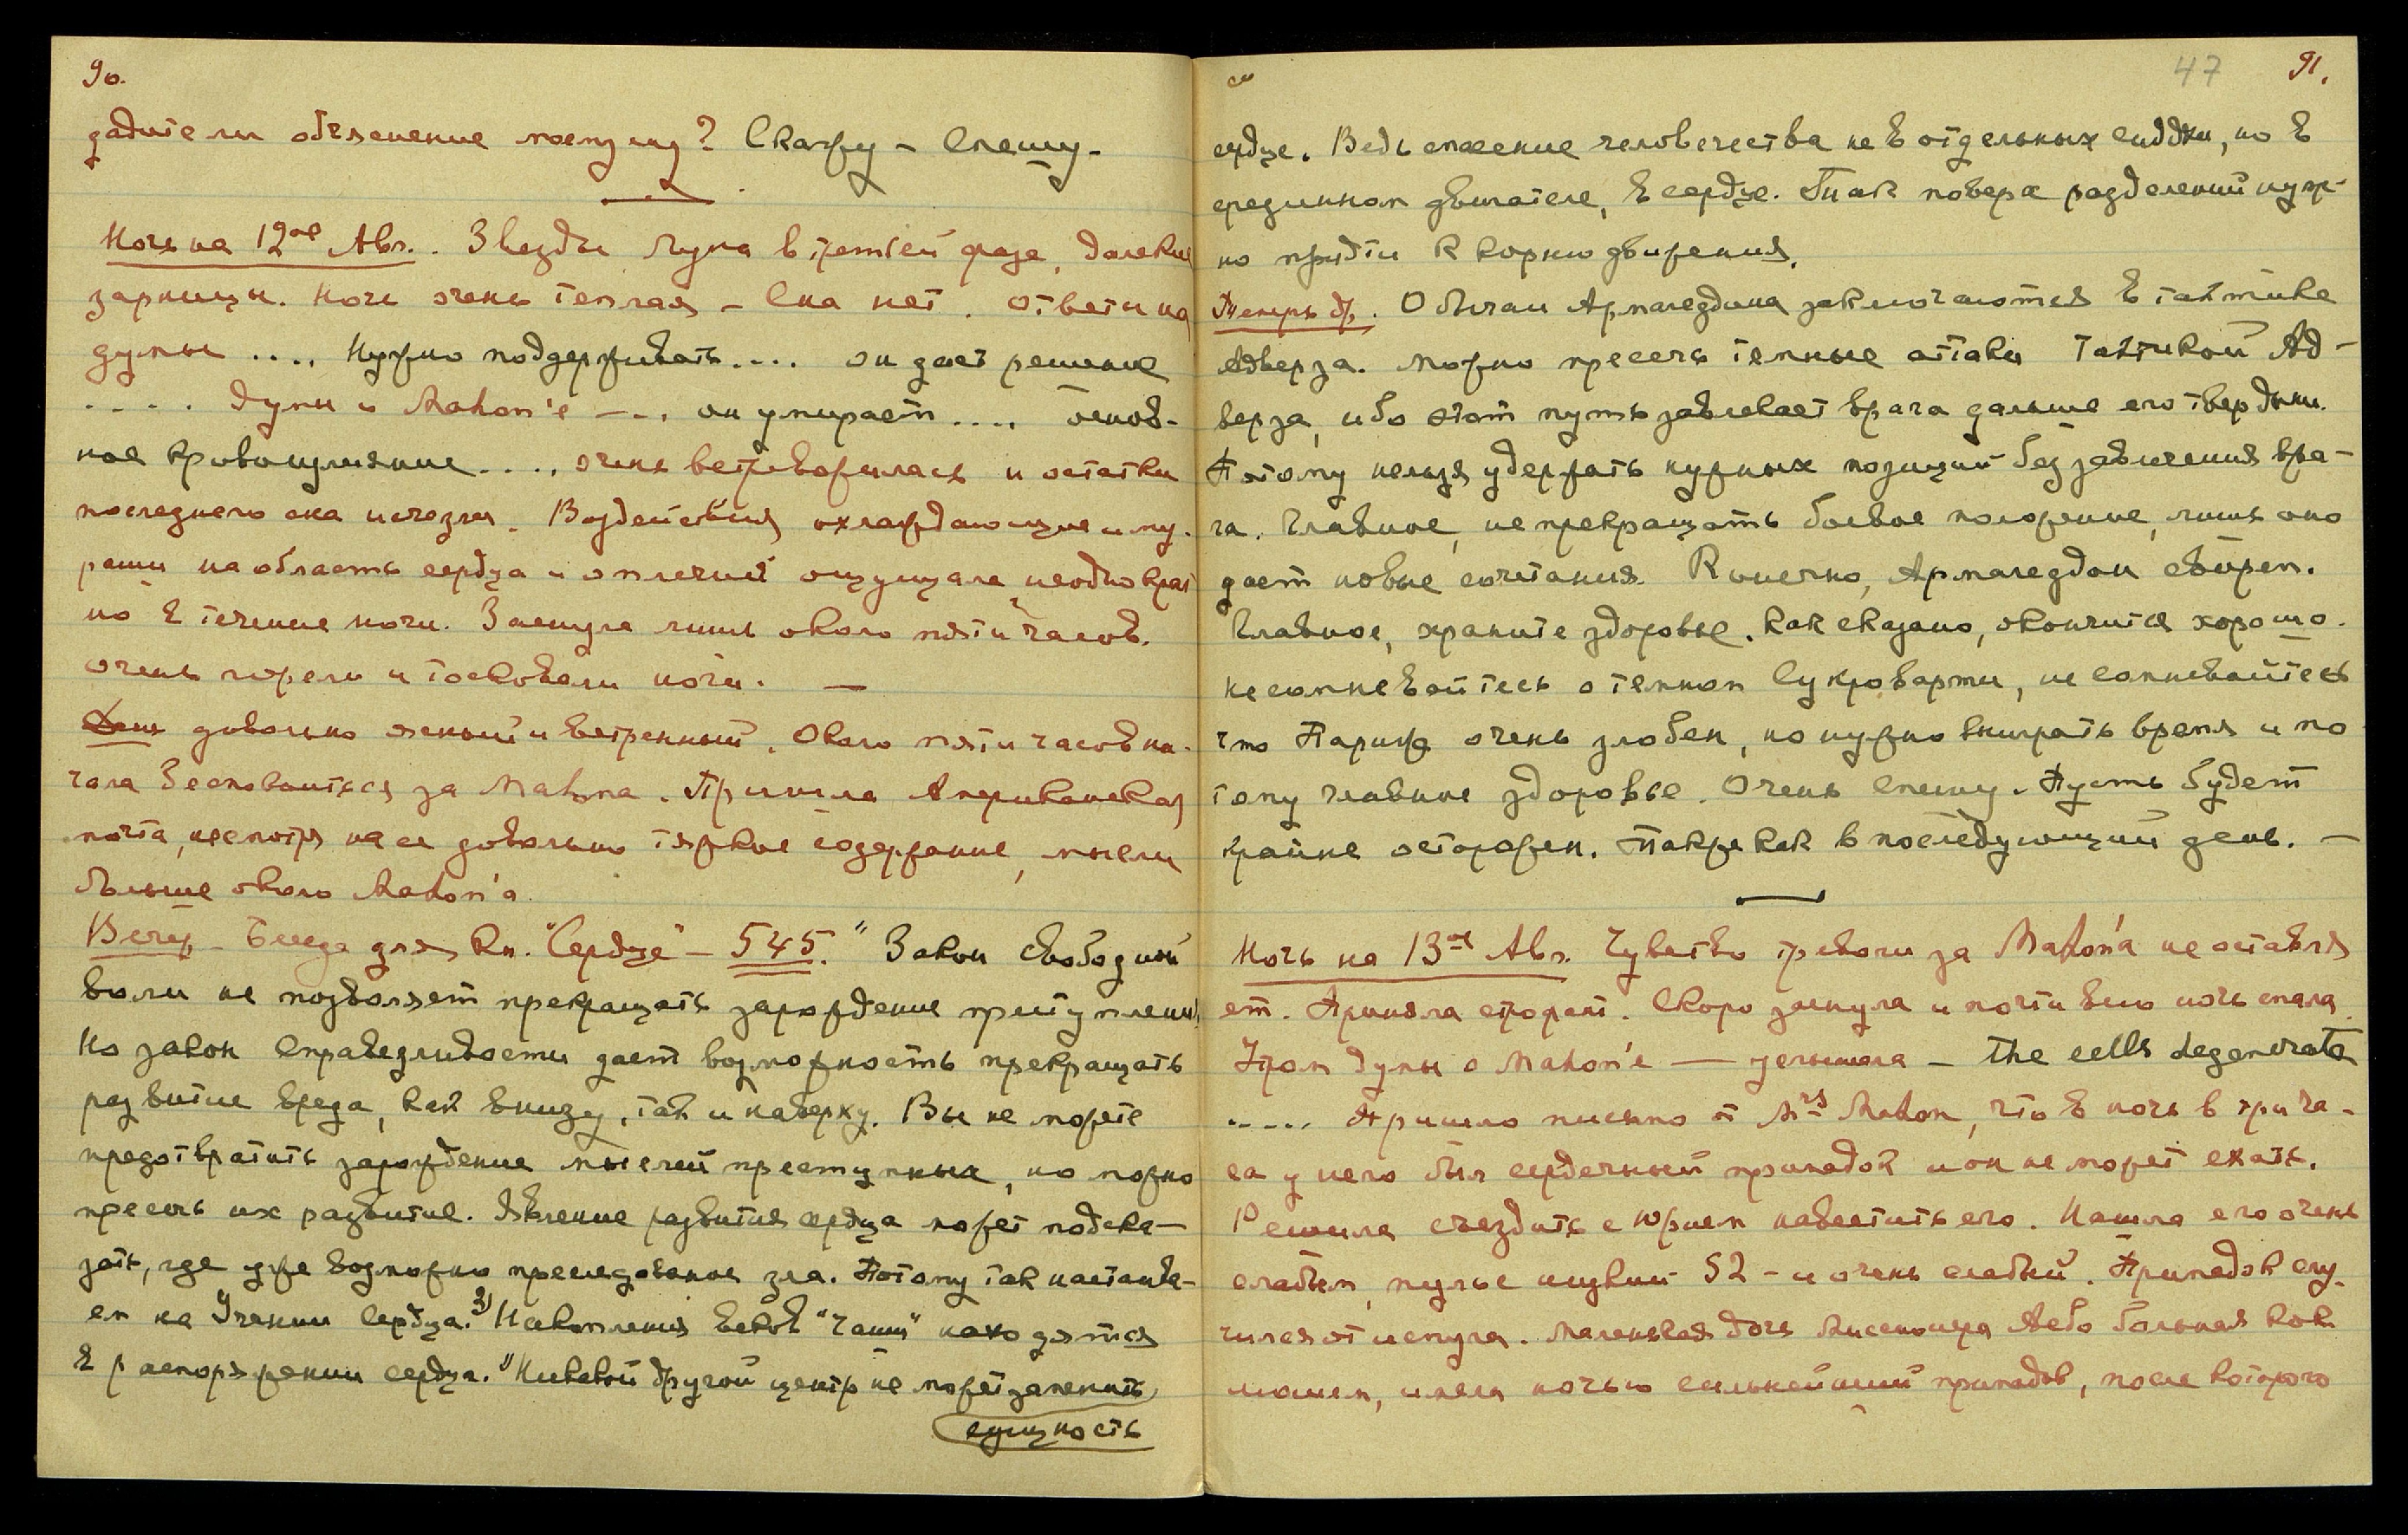 90.
дадите ли объяснение моему сну? Скажу – Спешу.
Ночь на 12ое Авг. Звезды Луна в третьей фазе, далекия
зарницы. Ночь очень теплая – Сна нет. Ответы на
думы .... Нужно поддерживать .... он дает решение
.... Думы о Mahon'е –.. он умирает .... основ-
ное кровоизлияние .... очень встревожилась и остатки
последнего сна исчезли. Воздействия охлаждающие и му-
рашки на область сердца и оплечий ощущала неоднократ
но в течение ночи. Заснула лишь около пяти часов.
Очень горели и тосковали ноги. —
День довольно ясный и ветренный. Около пяти часов на-
чала беспокоиться за Mahona. Пришла Американская
почта, несмотря на ее довольно тяжкое содержание, мысли
больше около Mahon'а.
Вечер – Беседа для Кн. "Сердце" – 545. "Закон свободной
воли не позволяет прекращать зарождение преступлений
Но закон Справедливости дает возможность прекращать
развитие вреда, как внизу, так и наверху. Вы не можете
предотвратить зарождение мыслей преступных, но можно
пресечь их развитие. Явление развития сердца может подска-
зать, где уже возможно преследование зла. Потому так настаива-
ем на Учении Сердца. 2) Накопления веков "Чаши" находятся
в распоряжении сердца." Никакой другой центр не может заменить
сущность
47 91.
сердце. Ведь спасение человечества не в отдельных сиддхи, но в
срединном двигателе, в сердце. Так поверх разделений нуж-
но придти к корню движения.
Теперь др. Обычаи Армагеддона заключаются в тактике
Адверза. Можно пресечь темные атаки тактикой Ад-
верза, ибо этот путь завлекает врага дальше его твердыни.
Потому нельзя удержать нужных позиций без завлечения вра-
га. Главное, не прекращать боевое положение, лишь оно
дает новые сочетания. Конечно, Армагеддон свиреп.
Главное, храните здоровье. Как сказано, окончится хорошо.
не сомневайтесь о темном Сукроварти, не сомневайтесь
что очень злобен, но нужно выиграть время и по
тому главное здоровье. Очень спешу. Пусть будет
крайне осторожен. Также как в последующий день. —
Ночь на 13ое Авг. Чувство тревоги за Mahon'а не оставля
ет. Приняла строфант. Скоро заснула и почти всю ночь спала.
Утром думы о Mahon'е — услышала – the cells degenerate
..... Пришло письмо от Mrs Mahon, что в ночь в три ча-
са у него был сердечный припадок и он не может ехать.
Решила съездить с Юрием навестить его. Нашла его очень
слабым, пульс низкий 52 – и очень слабый. Припадок слу-
чился от испуга. Маленькая дочь больная кок
люшем, имела ночью сильнейший припадок, после которого